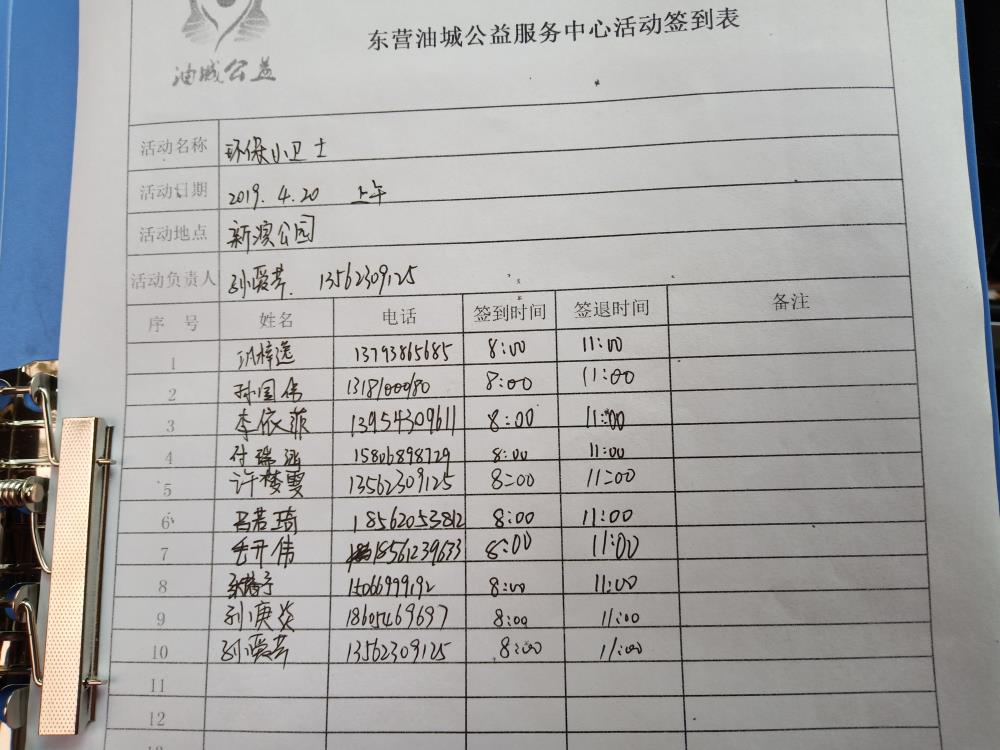 油城公益
东营油城公益服务中心活动签到表
活动名称 环保小卫士
活动日期 2019.4.20 上午
活动地点 新滨公园
活动负责人 孙爱芹. 13562309125
序 号 姓名 电话 签到时间 签退时间 备注
1 梓逸 13793865685 8:00 11:00
2 孙国伟 8:00 11:00
3 李依菲 13954309611 8:00 11:00
4 付瑞涵 15806898729 8:00 11:00
5 许梦雯 13562309125 8:00 11:00
6 吕若琦 18562053812 8:00 11:00
7 开伟 18561239633 8:00 11:00
8 15066999192 8:00 11:00
9 孙庚炎 18605469697 8:00 11:00
10 孙爱芹 13562309125 8:00 11:00
11
12